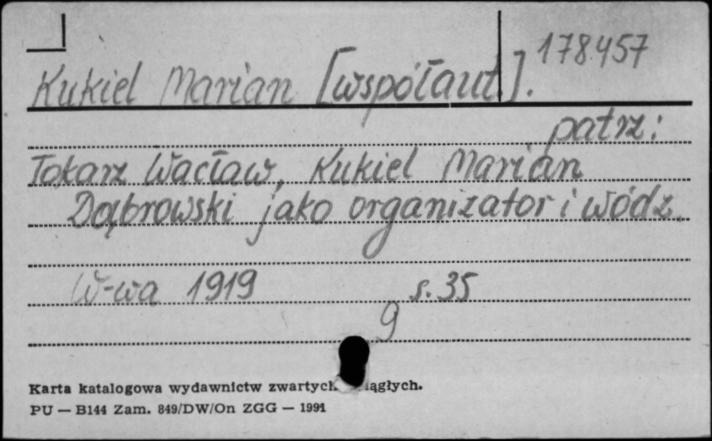 178457
Kukiel Marian [współaut.].
patrz:
Tokarz Wacław, Kukiel Marian
Dąbrowski jako organizator i wódz.
W-wa 1919 s. 35
9
Karta katalogowa wydawnictw zwartych ciągłych.
PU — B144 Zam. 849/DW/On ZGG — 1991